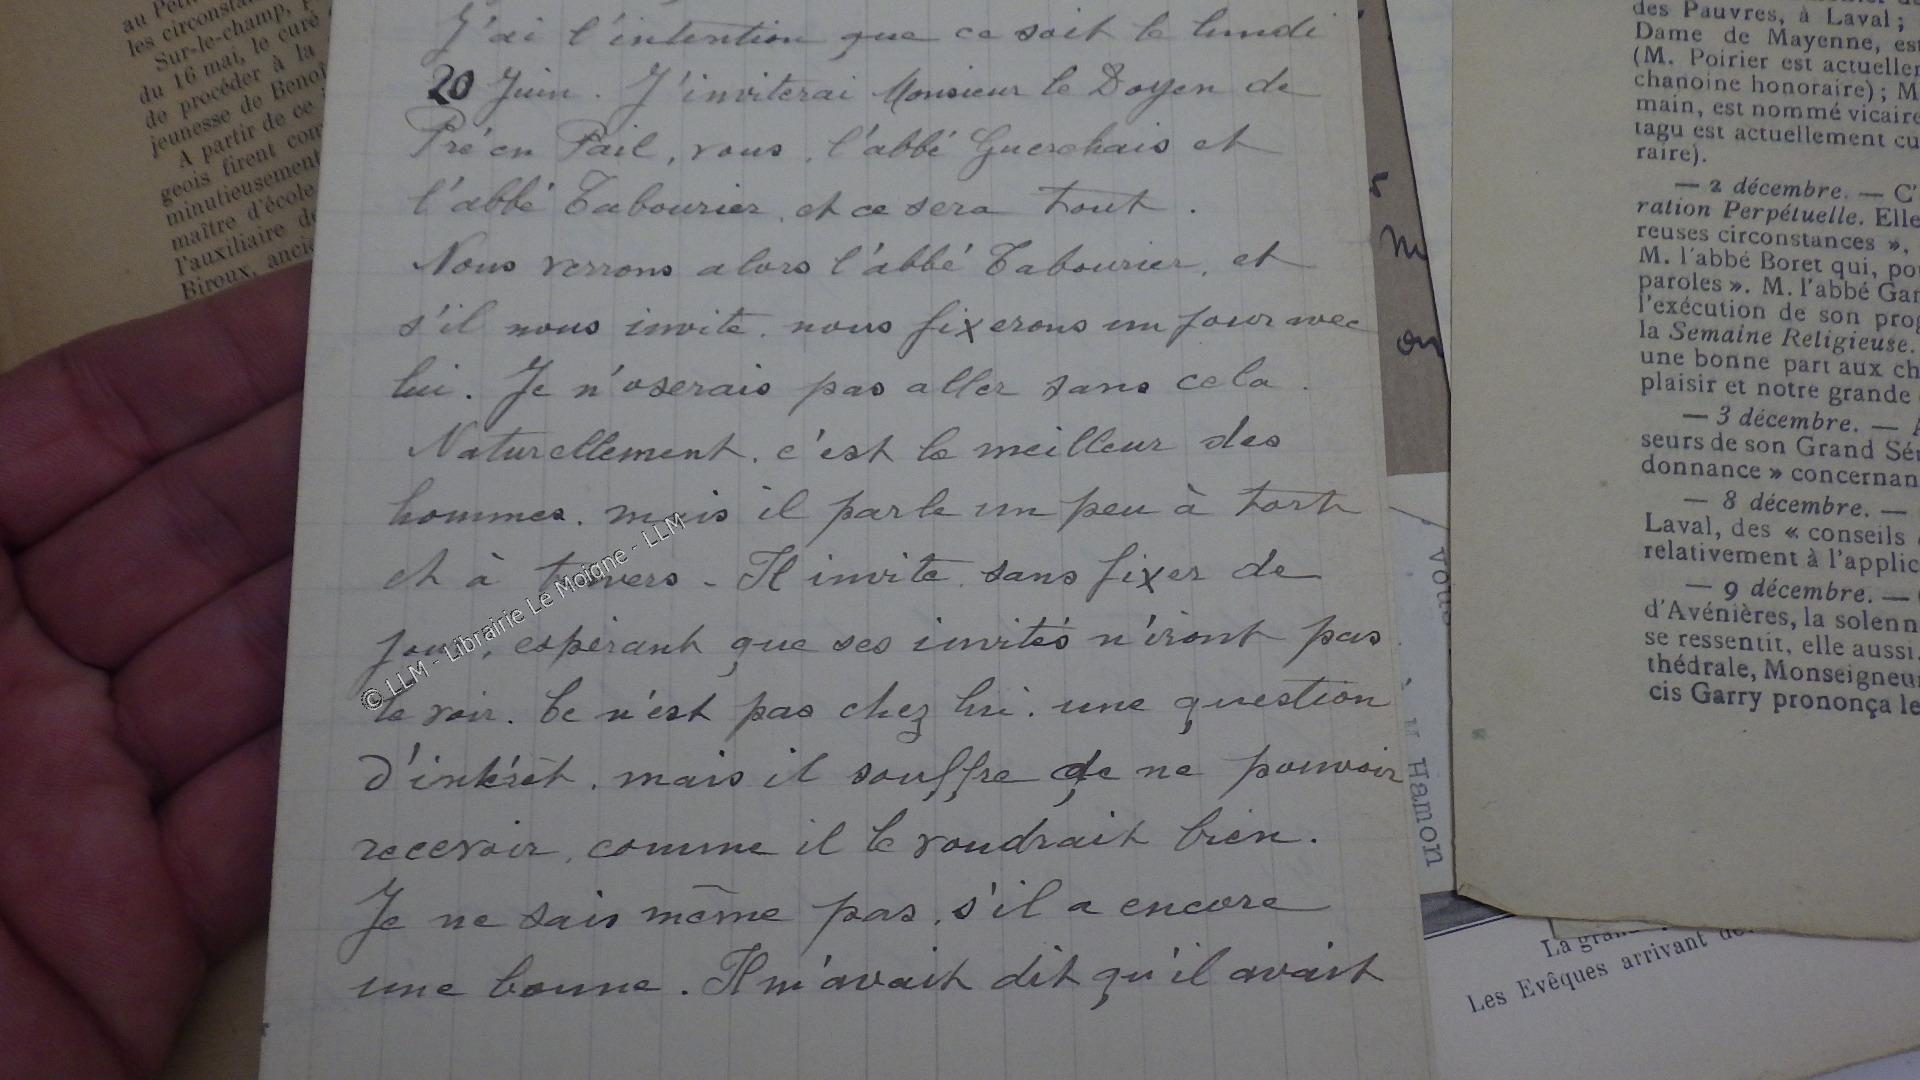 au Peti
les circonsta
Sur-le-champ, p
du 16 mai, le curé
de procéder à la
jeunesse de Benoî
A partir de ce
geois firent com
minutieusement
maître d'école
l'auxiliaire de
Biroux, anci
J'ai l'intention que ce soit le lundi
20 Juin. J'inviterai Monsieur le Doyen de
Pré en Pail, vous, l'abbé Guerchais et
l'abbé Tabourier, et ce sera tout.
Nous verrons alors l'abbé Tabourier, et
s'il nous invite, nous fixerons un jour avec
lui. Je n'oserais pas aller sans cela.
Naturellement, c'est le meilleur des
hommes, mais il parle un peu à tort
et à travers - Il invite, sans fixer de
jour, espérant que ses invités n'iront pas
le voir. Ce n'est pas chez lui, une question
d'intérêt, mais il souffre de ne pouvoir
recevoir, comme il le voudrait bien.
Je ne sais même pas, s'il a encore
une bonne. Il m'avait dit qu'il avait
© LLM - Librairie Le Moigne - LLM
on
vous
Hamon
des Pauvres, à Laval ;
Dame de Mayenne, es
(M. Poirier est actueller
chanoine honoraire) ; M
main, est nommé vicaire
tagu est actuellement cu
raire).
— 2 décembre. — C'
ration Perpétuelle. Elle
reuses circonstances »,
M. l'abbé Boret qui, pou
paroles ». M. l'abbé Gar
l'exécution de son prog
la Semaine Religieuse.
une bonne part aux ch
plaisir et notre grande
— 3 décembre. — A
seurs de son Grand Sé
donnance » concernan
— 8 décembre. —
Laval, des « conseils
relativement à l'applic
— 9 décembre. —
d'Avénières, la solenn
se ressentit, elle aussi.
thédrale, Monseigneur
cis Garry prononça le
La gran
Les Evêques arrivant de